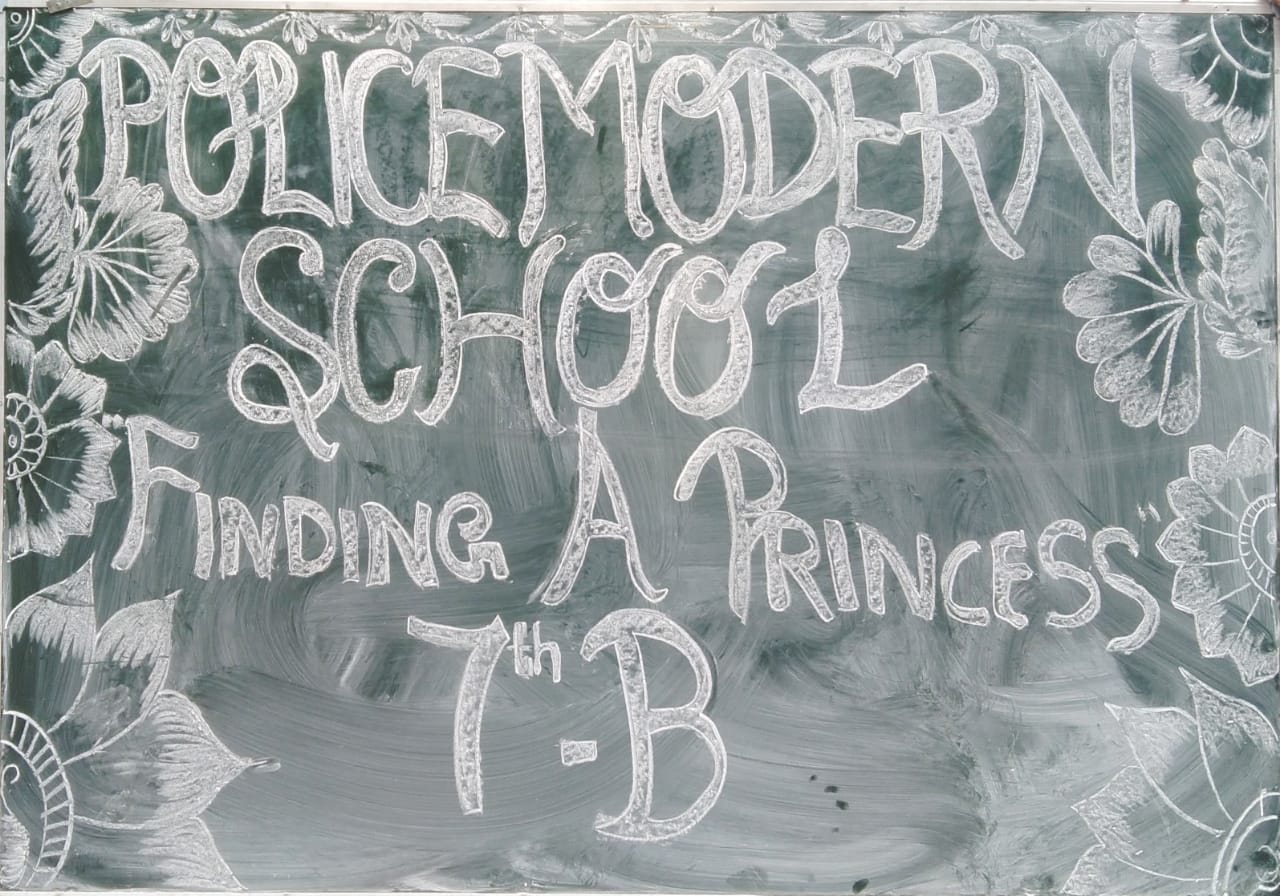 POLICE MODERN
SCHOOL
"FINDING A PRINCESS"
7th - B